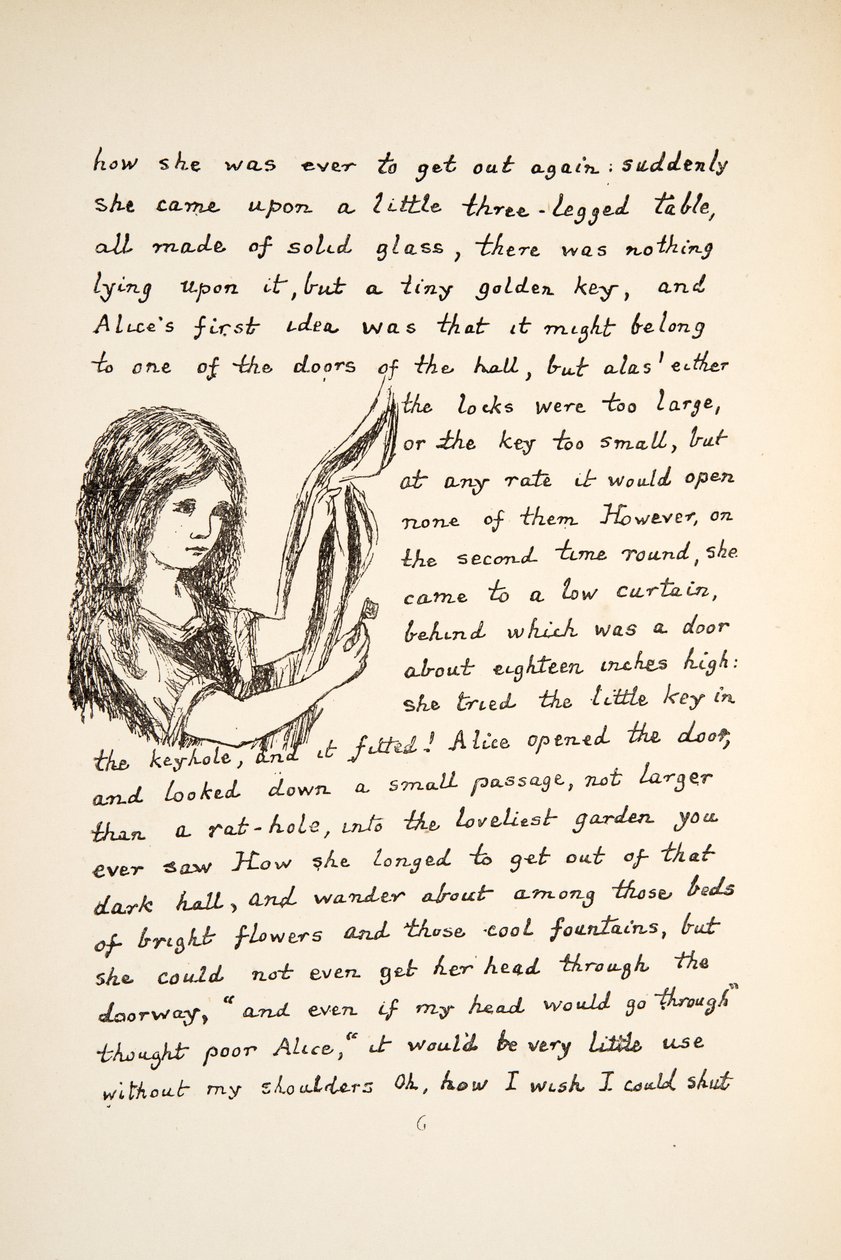 how she was ever to get out again: suddenly
she came upon a little three-legged table,
all made of solid glass, there was nothing
lying upon it, but a tiny golden key, and
Alice's first idea was that it might belong
to one of the doors of the hall, but alas! either
the locks were too large,
or the key too small, but
at any rate it would open
none of them However, on
the second time round, she
came to a low curtain,
behind which was a door
about eighteen inches high:
she tried the little key in
the keyhole, and it fitted! Alice opened the door,
and looked down a small passage, not larger
than a rat-hole, into the loveliest garden you
ever saw How she longed to get out of that
dark hall, and wander about among those beds
of bright flowers and those cool fountains, but
she could not even get her head through the
doorway, "and even if my head would go through"
thought poor Alice, "it would be very little use
without my shoulders Oh, how I wish I could shut
6